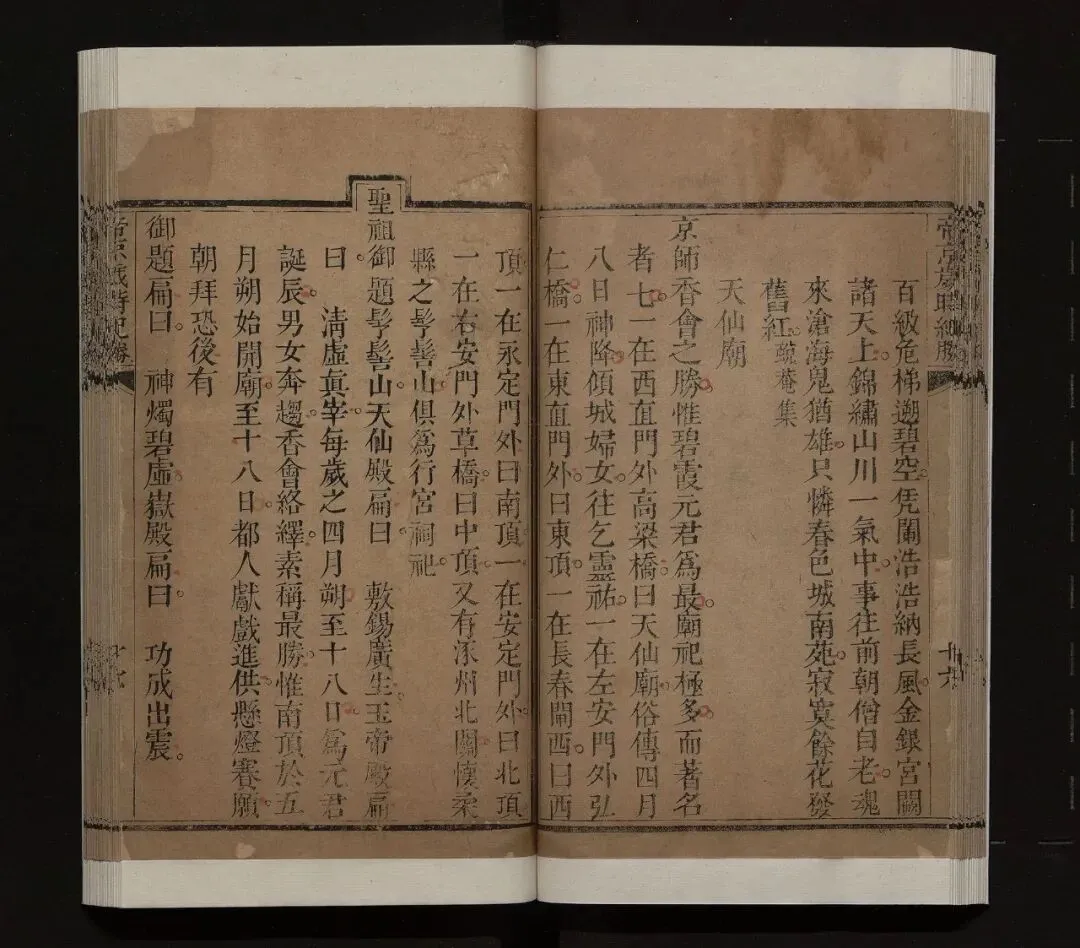 帝京歲時紀勝
十六
百級危梯遡碧空。凭闌浩浩納長風。金銀宮闕
諸天上。錦繡山川一氣中。事往前朝僧自老。魂
來滄海鬼猶雄。只憐春色城南苑。寂寞餘花發
舊紅。蔬菴集
天仙廟
京師香會之勝。惟碧霞元君爲最。廟祀極多。而著名
者七。一在西直門外高梁橋。曰天仙廟。俗傳四月
八日神降。傾城婦女。往乞靈祐。一在左安門外弘
仁橋。一在東直門外。曰東頂。一在長春閘西。曰西
頂。一在永定門外。曰南頂。一在安定門外。曰北頂。
一在右安門外草橋。曰中頂。又有涿州北關。懷柔
縣之髣髻山。俱爲行宮祠祀。
聖祖御題髣髻山天仙殿扁曰 敷錫廣生。玉帝殿扁
曰 淸虛眞宰。每歲之四月朔至十八日。爲元君
誕辰。男女奔趨。香會絡繹。素稱最勝。惟南頂於五
月朔始開廟。至十八日。都人獻戲進供。懸燈賽願。
朝拜恐後。有
御題扁曰。 神燭碧虛。嶽殿扁曰。 功成出震。
帝京歲時紀勝
十七